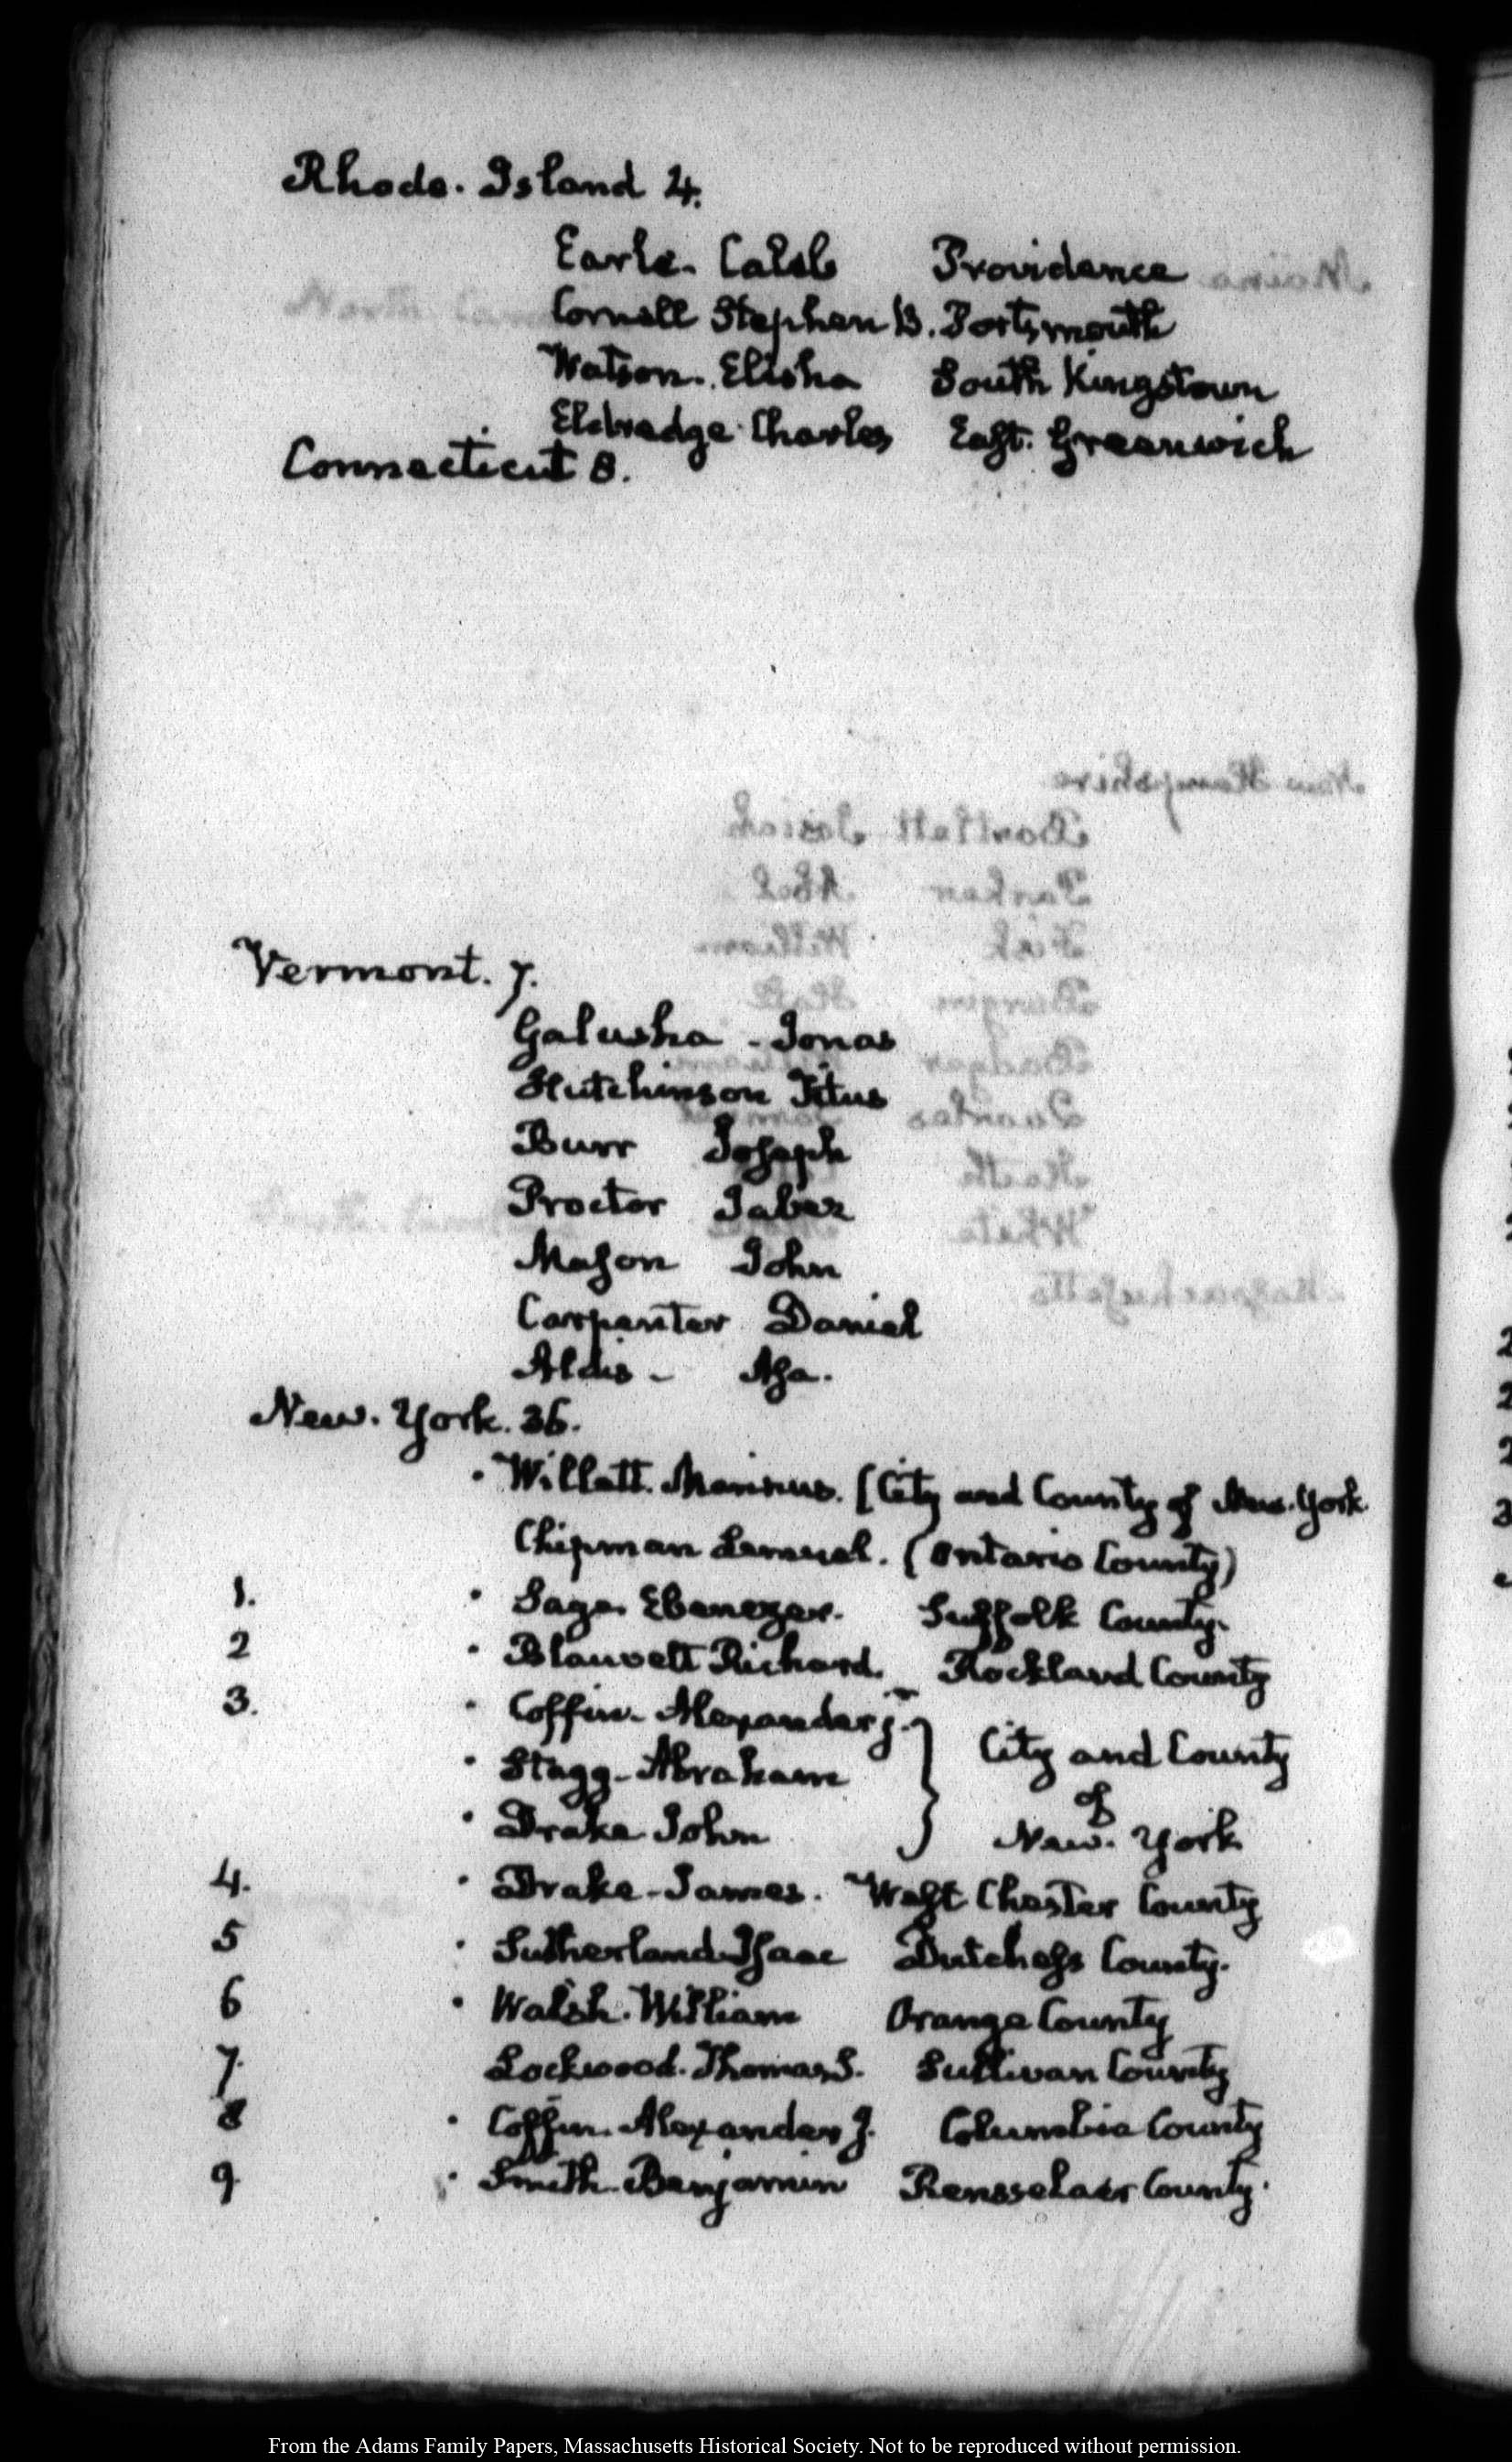 Rhode. Island 4.
Earle. Caleb Providence
Cornell Stephen B. Portsmouth
Watson. Elisha South Kingstown
Eldredge Charles East. Greenwich
Connecticut 8.
Vermont. 7.
Galusha - Jonas
Hutchinson Titus
Burr Joseph
Proctor Jabez
Mason John
Carpenter Daniel
Aldis - Asa.
New. York. 36.
Willett. Marinus. (City and County of New. York
Chipman Lemuel. (Ontario County)
1. Sage. Ebenezer. Suffolk County.
2 Blauvelt Richard. Rockland County
3. Coffin. Alexander j. City and County
Stagg - Abraham of
Drake John New. York
4. Drake - James. West Chester County
5 Sutherland Isaac Dutchess County.
6 Walsh. William Orange County
7. Lockwood. Thomas S. Sullivan County
8 Coffin. Alexander J. Columbia County
9. Smith. Benjamin Rensselaer County.
From the Adams Family Papers, Massachusetts Historical Society. Not to be reproduced without permission.